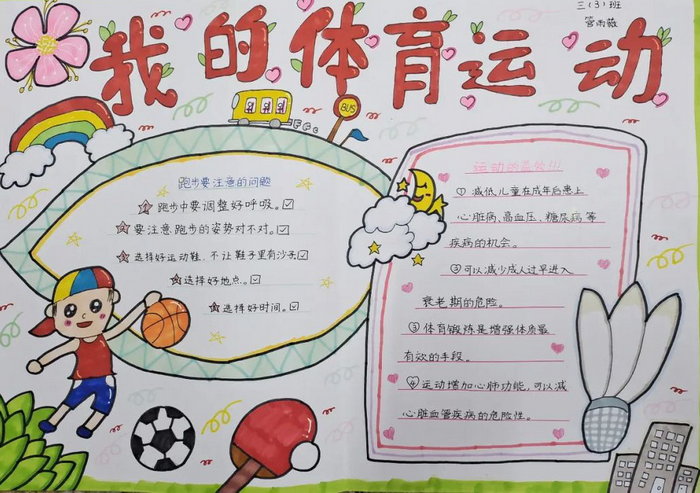 三（3）班
管雨薇
我的体育运动
BUS
跑步要注意的问题
跑步中要调整好呼吸。
要注意跑步的姿势对不对。
选择好运动鞋，不让鞋子里有沙子
选择好地点。
选择好时间。
运动的益处!!!
① 减低儿童在成年后患上
心脏病、高血压，糖尿病等
疾病的机会。
② 可以减少成人过早进入
衰老期的危险。
③ 体育锻炼是增强体质最
有效的手段。
④ 运动增加心肺功能，可以减
心脏血管疾病的危险性。